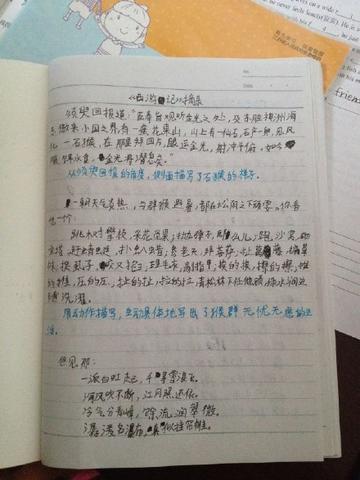 《西游记》摘录
须臾回报道："臣奉旨观听金光之处，乃东胜神洲海
东傲来小国之界，有一座花果山，山上有一仙石，石产一卵，见风
化一石猴，在那里拜四方，眼运金光，射冲斗府。如今
服饵水食，金光将潜息矣。"
从须臾回报的角度，侧面描写了石猴的样子。
一朝天气炎热，与群猴避暑，都在松阴之下顽耍。你看
他一个个：
跳树攀枝，采花觅果；抛弹子，邷么儿；跑沙窝，砌
宝塔；赶蜻蜓，扑八蜡；参老天，拜菩萨；扯葛藤，编草
帓；捉虱子，咬又掐；理毛衣，剔指甲；挨的挨，擦的擦；推
的推，压的压；扯的扯，拉的拉，青松林下任他顽，绿水涧边
随洗濯。
用动作描写，生动具体地写出了猴群无忧无虑的生
活。
但见那：
一派白虹起，千寻雪浪飞。
海风吹不断，江月照还依。
冷气分青嶂，馀流润翠微。
潺湲名瀑布，真似挂帘帷。